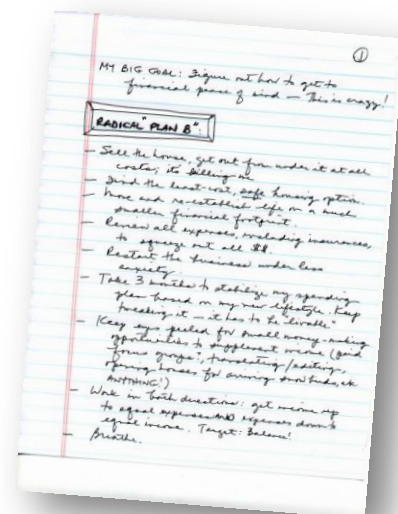 ①
MY BIG GOAL: Figure out how to get to
financial peace of mind — This is crazy!
RADICAL "PLAN B":
— Sell the house, get out from under it at all
costs; its killing me
— Find the least-cost, safe housing option.
— Move and re-establish life on a much
smaller financial footprint.
— Review all expenses, including insurances,
to squeeze out all $$.
— Restart the business under less
anxiety.
— Take 3 months to stabilize my spending
plan based on my new lifestyle. Keep
tweaking it — it has to be "livable"
— Keep eyes peeled for small money-making
opportunities to supplement income (paid
focus groups, translating/editing,
opening houses for arriving snowbirds, etc
ANYTHING!)
— Work in both directions: get income up
to equal expenses AND expenses down to
equal income. Target: Balance!
— Breathe.